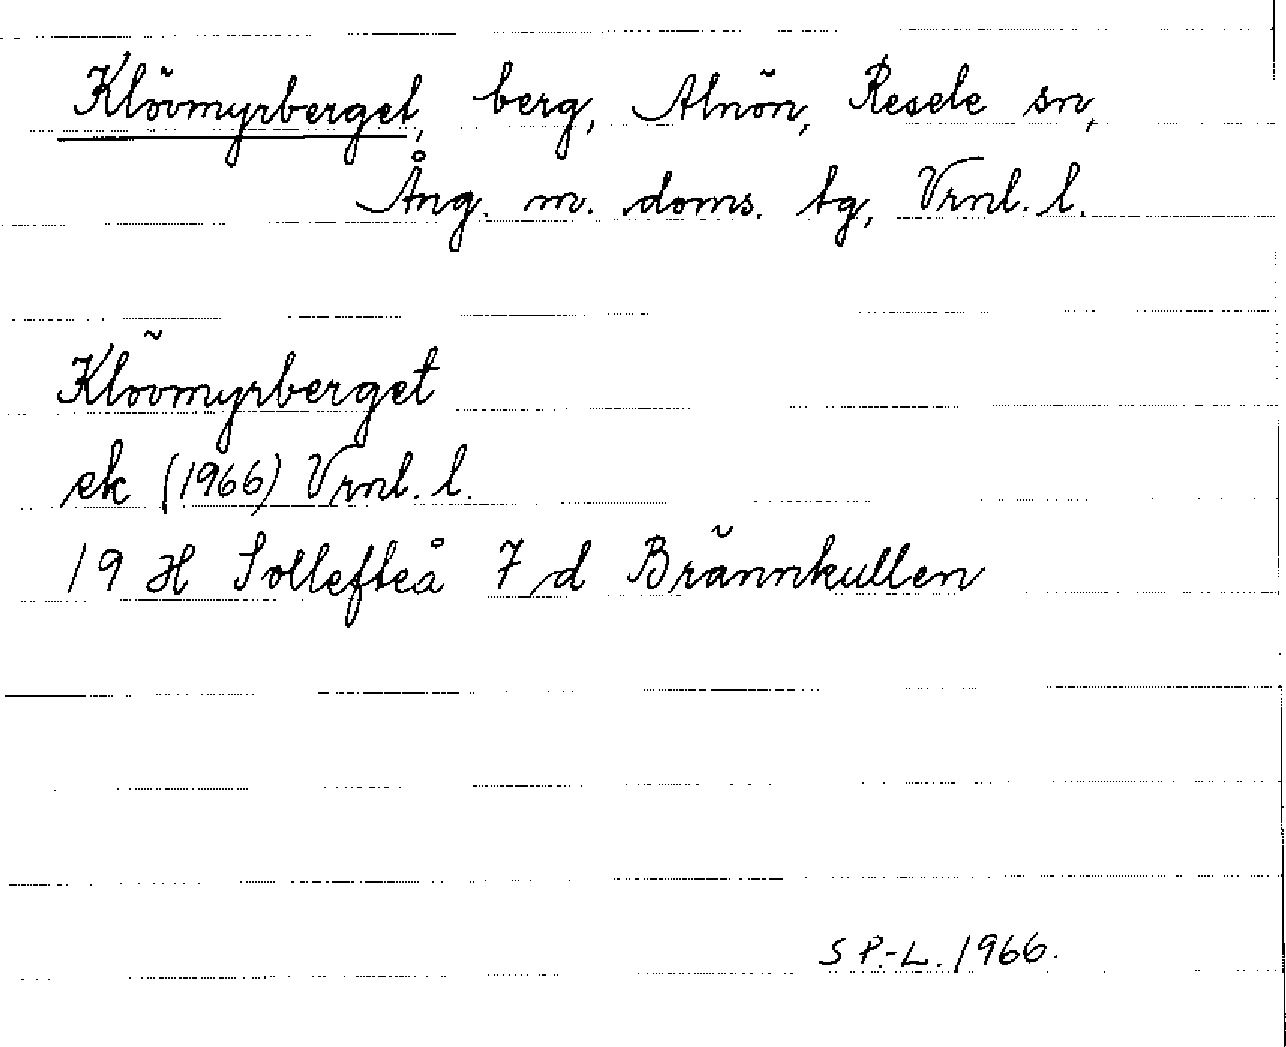 Klövmyrberget, berg, Alnön, Resele sn,
Ång. m. doms. tg, Vrnl. l.
Klövmyrberget
ek (1966) Vrnl. l.
19 H Sollefteå 7 d Brännkullen
S P.-L. 1966.